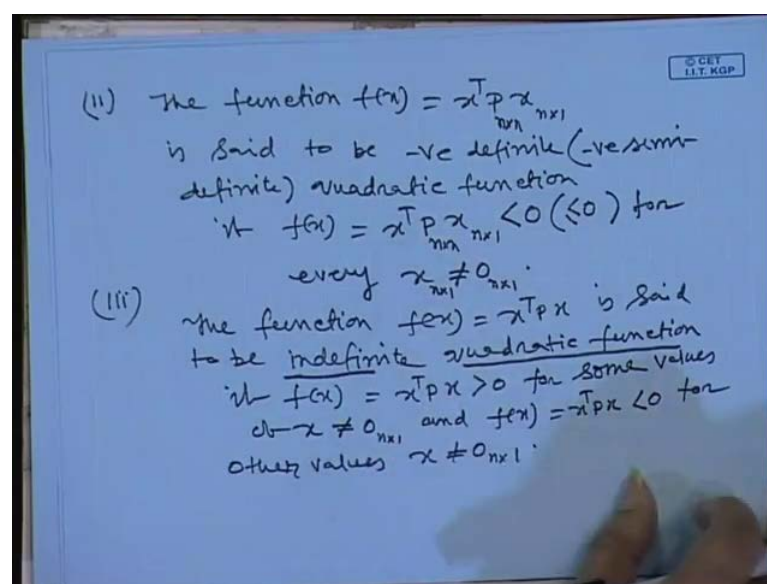 © CET
I.I.T. KGP
(11) The function f(x) = xᵀ P_{n×n} x_{n×1}
is said to be -ve definite (-ve semi-
definite) quadratic function
if f(x) = xᵀ P_{n×n} x_{n×1} < 0 (≤0) for
every x_{n×1} ≠ 0_{n×1}.
(iii) The function f(x) = xᵀPx is said
to be indefinite quadratic function
if f(x) = xᵀPx > 0 for some values
of x ≠ 0_{n×1} and f(x) = xᵀPx < 0 for
other values x ≠ 0_{n×1}.